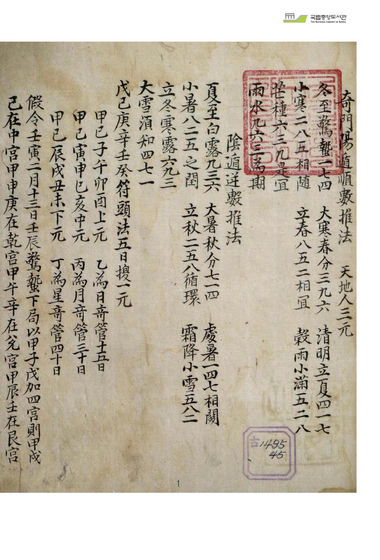 국립중앙도서관
奇門陽遁順數推法 天地人三元
冬至驚蟄一七四 大寒春分三九六 清明立夏四一七
小寒二八五相隨 立春八五二相宜 穀雨小滿五二八
芒種六三九是宜
雨水九六三爲期
陰遁逆數推法
夏至白露九三六 大暑秋分七一四 處暑一四七相關
小暑八二五之閏 立秋二五八循環 霜降小雪五八二
立冬寒露六九三
大雪須知四七一
戊己庚辛壬癸符頭法五日換一元
甲己子午卯酉上元 乙爲日奇管十五日
甲己寅申巳亥中元 丙爲月奇管三十日
甲己辰戌丑未下元 丁爲星奇管四十日
假令壬寅二月十三日壬辰驚蟄下局以甲子戊加四宮則甲戌
己在中宮甲申庚在乾宮甲午辛在兌宮甲辰壬在艮宮
古1495
45
1